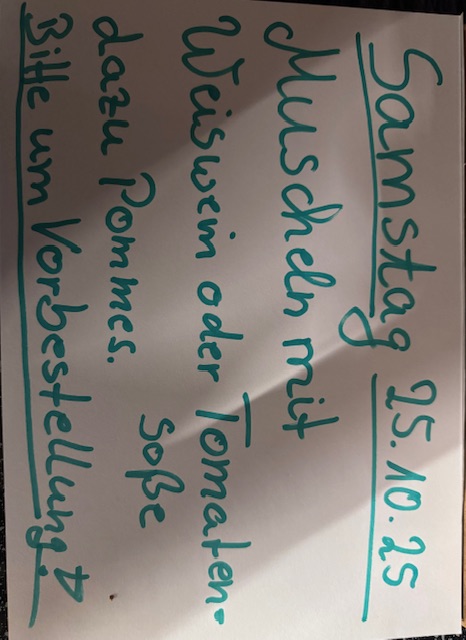 Samstag 25.10.25
Muscheln mit
Weiswein oder Tomaten-
soße
dazu Pommes.
Bitte um Vorbestellung!